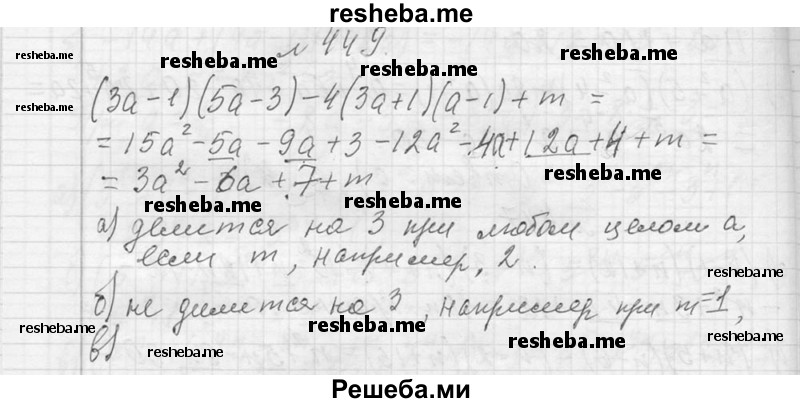 resheba.me
№ 449.
(3a-1)(5a-3)-4(3a+1)(a-1)+m =
= 15a²-5a-9a+3-12a²-4a+12a+4+m =
= 3a²-6a+7+m
а) делится на 3 при любом целом a,
если m, например, 2.
б) не делится на 3, например при m=1,
в)
resheba.me
resheba.me
resheba.me
resheba.me
resheba.me
resheba.me
resheba.me
resheba.me
resheba.me
resheba.me
resheba.me
resheba.me
resheba.me
Решеба.ми